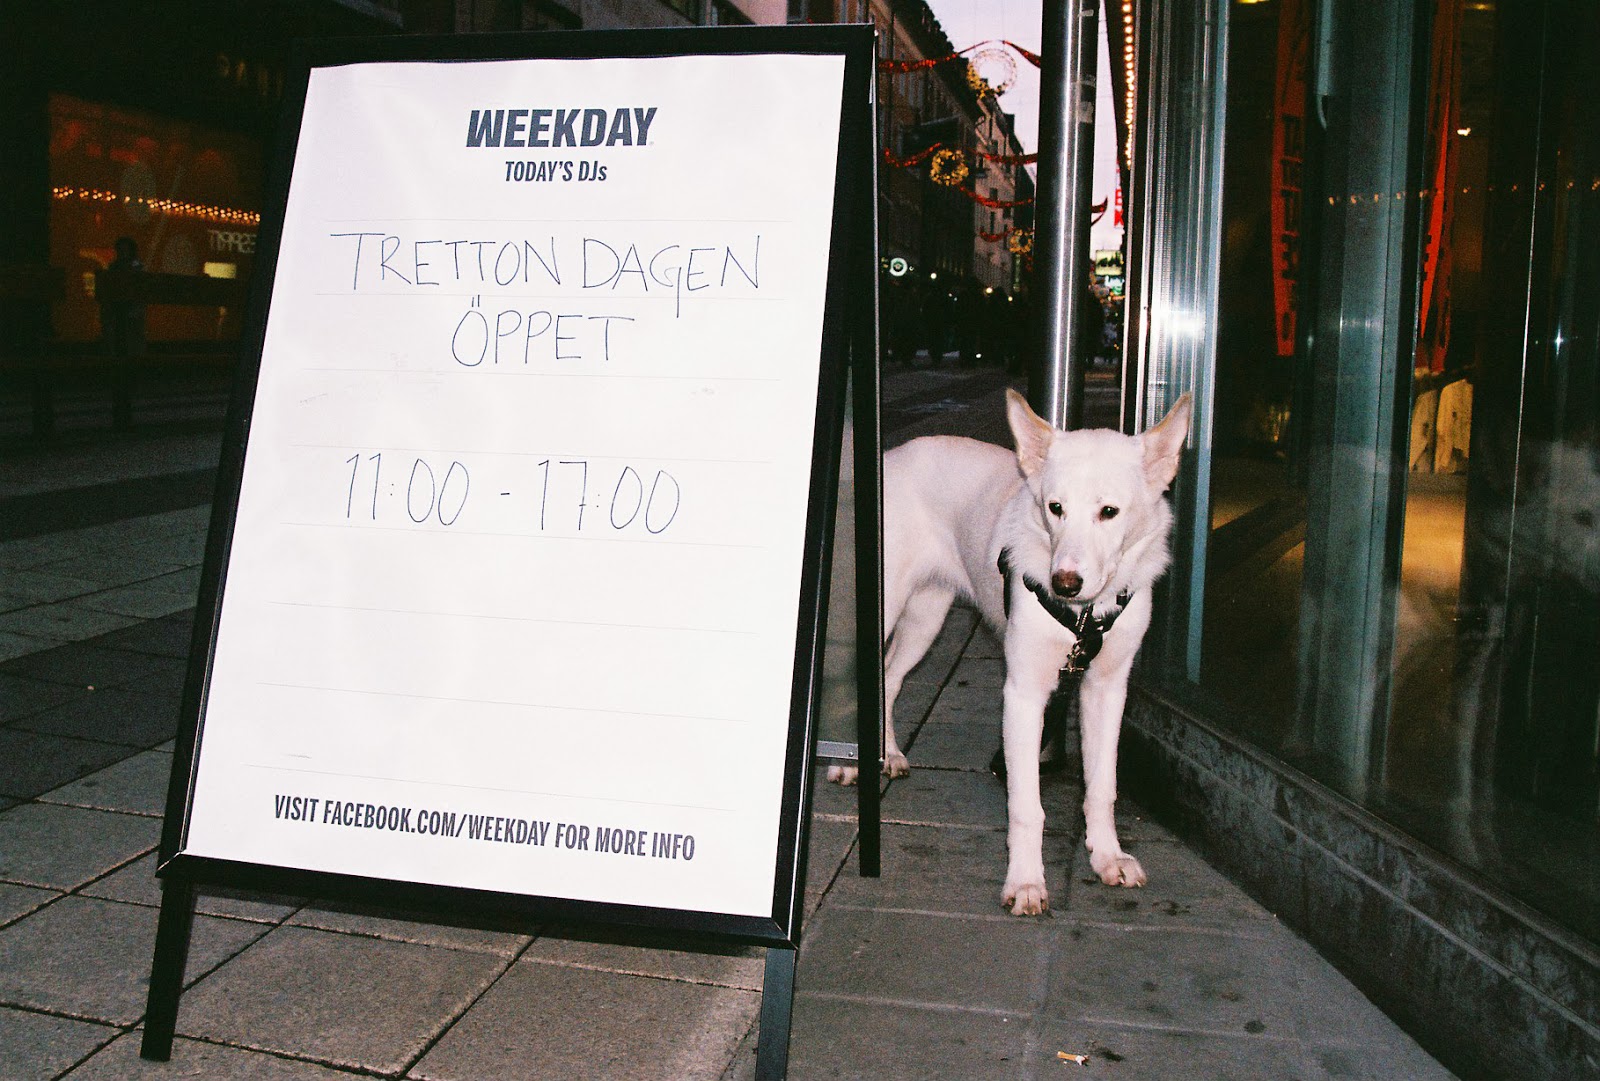 WEEKDAY
TODAY'S DJs
TRETTON DAGEN
ÖPPET
11:00 - 17:00
VISIT FACEBOOK.COM/WEEKDAY FOR MORE INFO